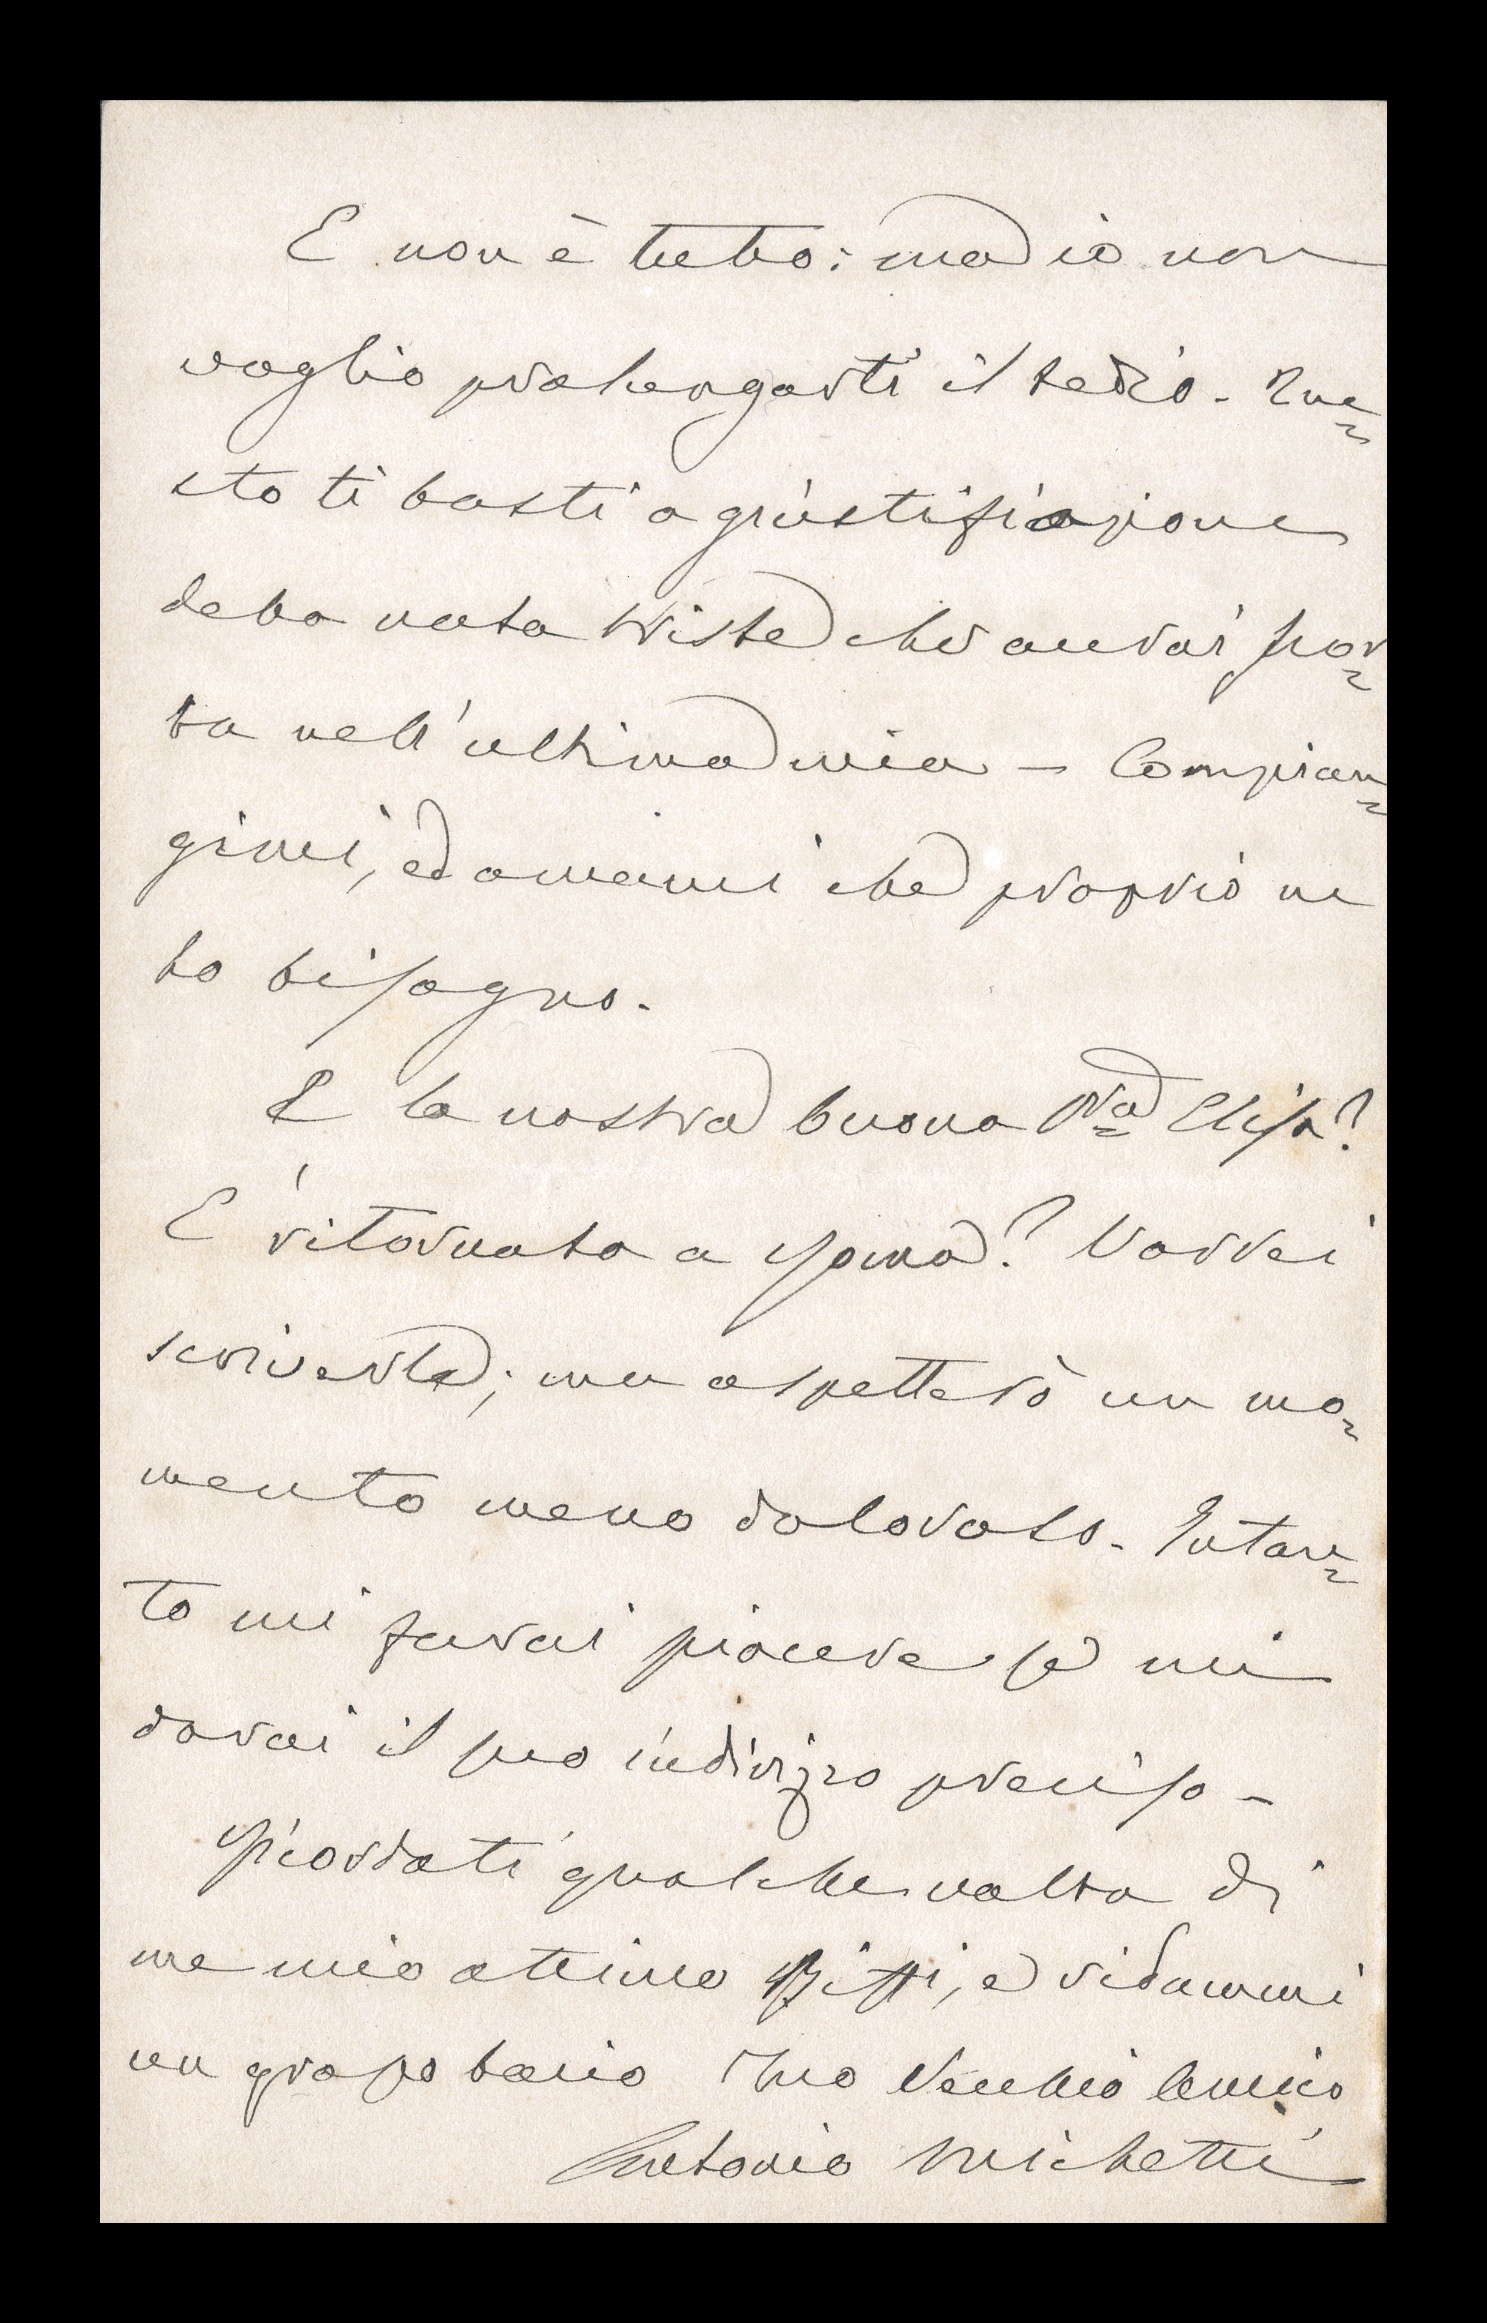 E non è tutto: ma io non
voglio prolungarti il tedio. Que=
sto ti basti a giustificazione
della nota triste che avrai scor=
ta nell'ultima mia – Compian=
gimi, ed amami che proprio ne
ho bisogno.
E la nostra buona Elisa?
E' ritornata a Roma? Vorrei
scriverle; ma aspetterò un mo=
mento meno doloroso. Intan=
to mi farai piacere se mi
darai il suo indirizzo preciso –
Ricordati qualche volta di
me mio ottimo Biffi, e ridammi
un grosso bacio Tuo Vecchio Amico
Antonio Michetti